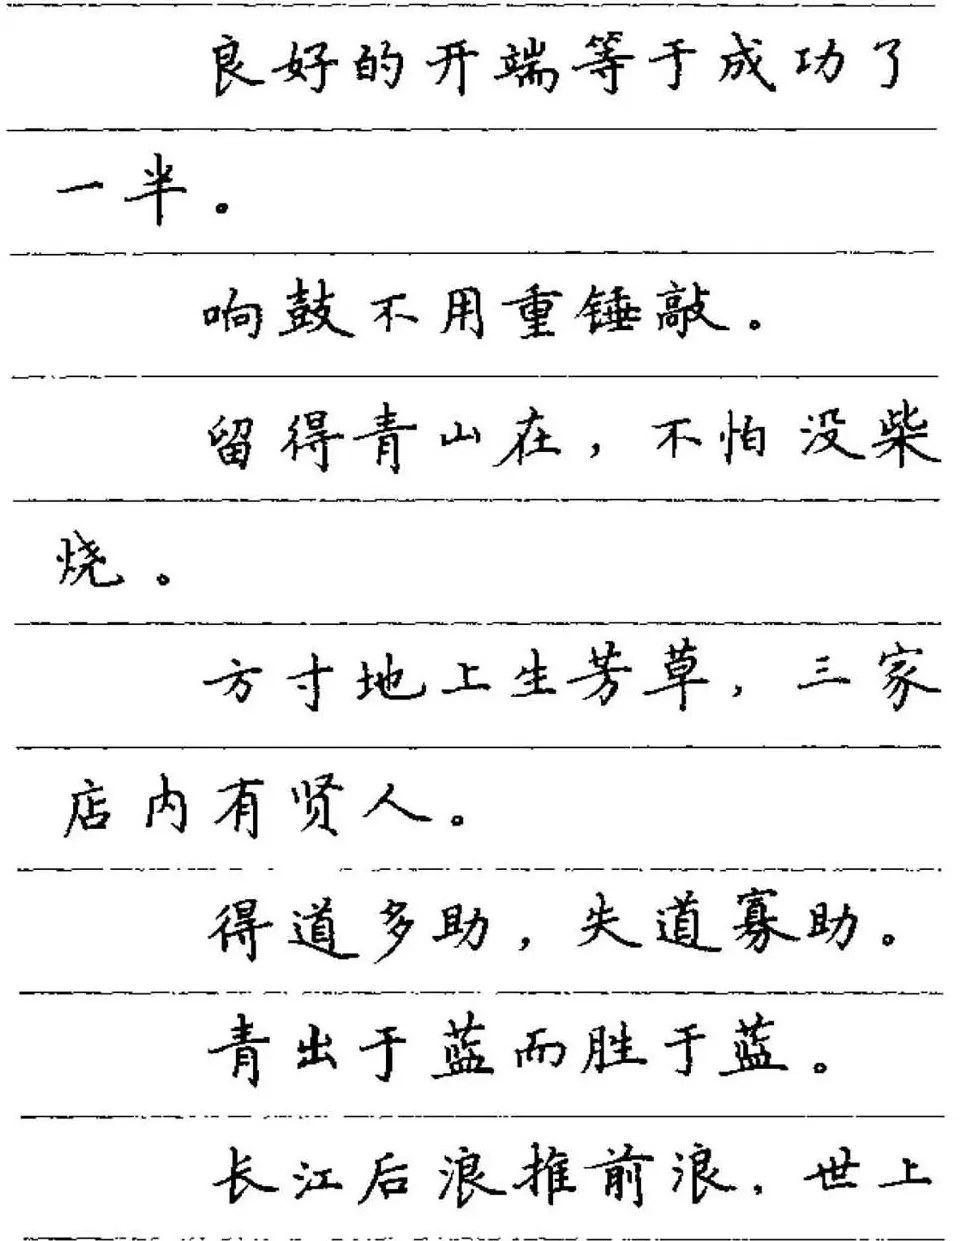 良好的开端等于成功了
一半。
响鼓不用重锤敲。
留得青山在，不怕没柴
烧。
方寸地上生芳草，三家
店内有贤人。
得道多助，失道寡助。
青出于蓝而胜于蓝。
长江后浪推前浪，世上